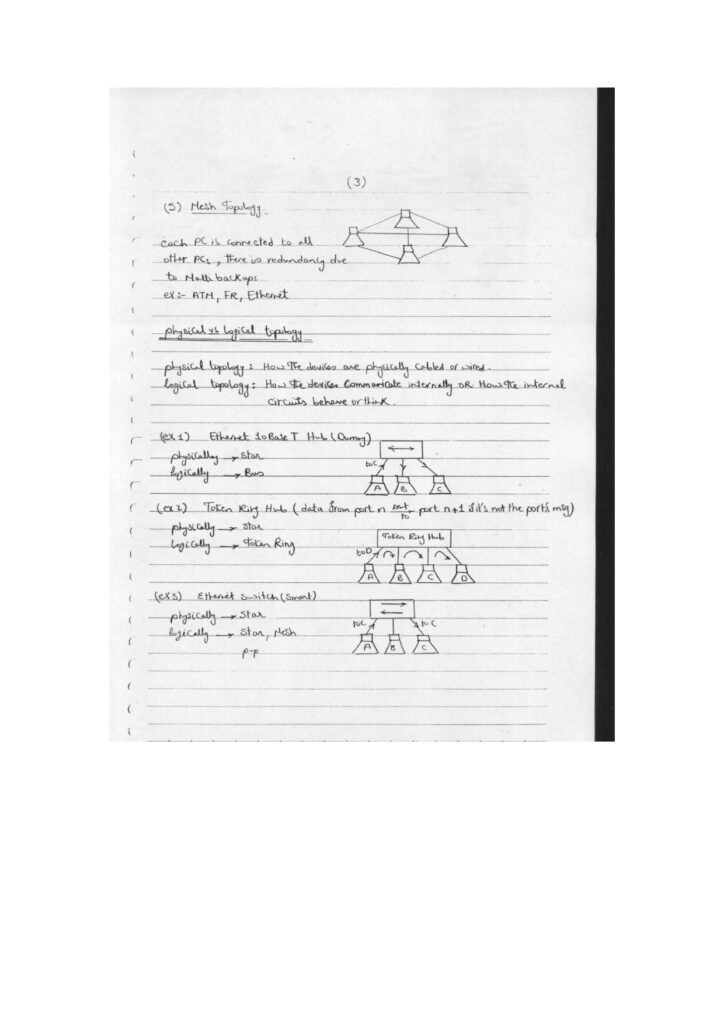 (3)
(5) Mesh Topology
each PC is connected to all
other PCs, there is redundancy due
to Multi backups
ex:- ATM, FR, Ethernet
physical vs logical topology
physical topology: How the devices are physically cabled or wired.
logical topology: How the devices Communicate internally OR How the internal
circuits behave or think.
(ex1) Ethernet 10 Base T Hub (Dummy)
physically → Star
logically → Bus
to C
A B C
(ex2) Token Ring Hub (data from port n to port n+1 if it's not the port's msg)
physically → Star
logically → Token Ring
Token Ring Hub
to D
A B C D
(ex3) Ethernet Switch (Smart)
physically → Star
logically → Star, Mesh
p-p
to C to C
A B C